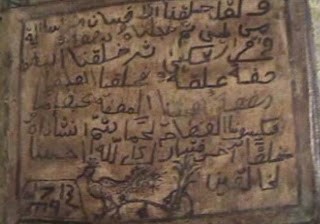 ولقد خلقنا الانسان من سلالة
من طين ثم جعلناه نطفة في
قرار مكين ثم خلقنا النط
فة علقة فخلقنا العلقة
مضغة فخلقنا المضغة عظاما
فكسونا العظام لحما ثم انشاناه
خلقا اخر فتبارك الله احسن
الخالقين